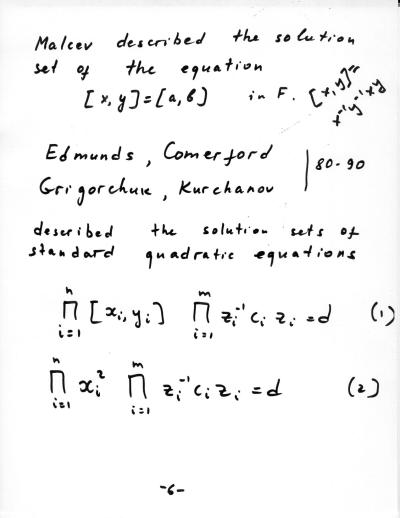 Malcev described the solution
set of the equation
[x, y] = [a, b] in F. [x, y] =
x⁻¹y⁻¹xy
Edmunds, Comerford | 80-90
Grigorchuk, Kurchanov
described the solution sets of
standard quadratic equations
∏ᵢ₌₁ⁿ [xᵢ, yᵢ] ∏ᵢ₌₁ᵐ zᵢ⁻¹ cᵢ zᵢ = d (1)
∏ᵢ₌₁ⁿ xᵢ² ∏ᵢ₌₁ᵐ zᵢ⁻¹ cᵢ zᵢ = d (2)
-6-